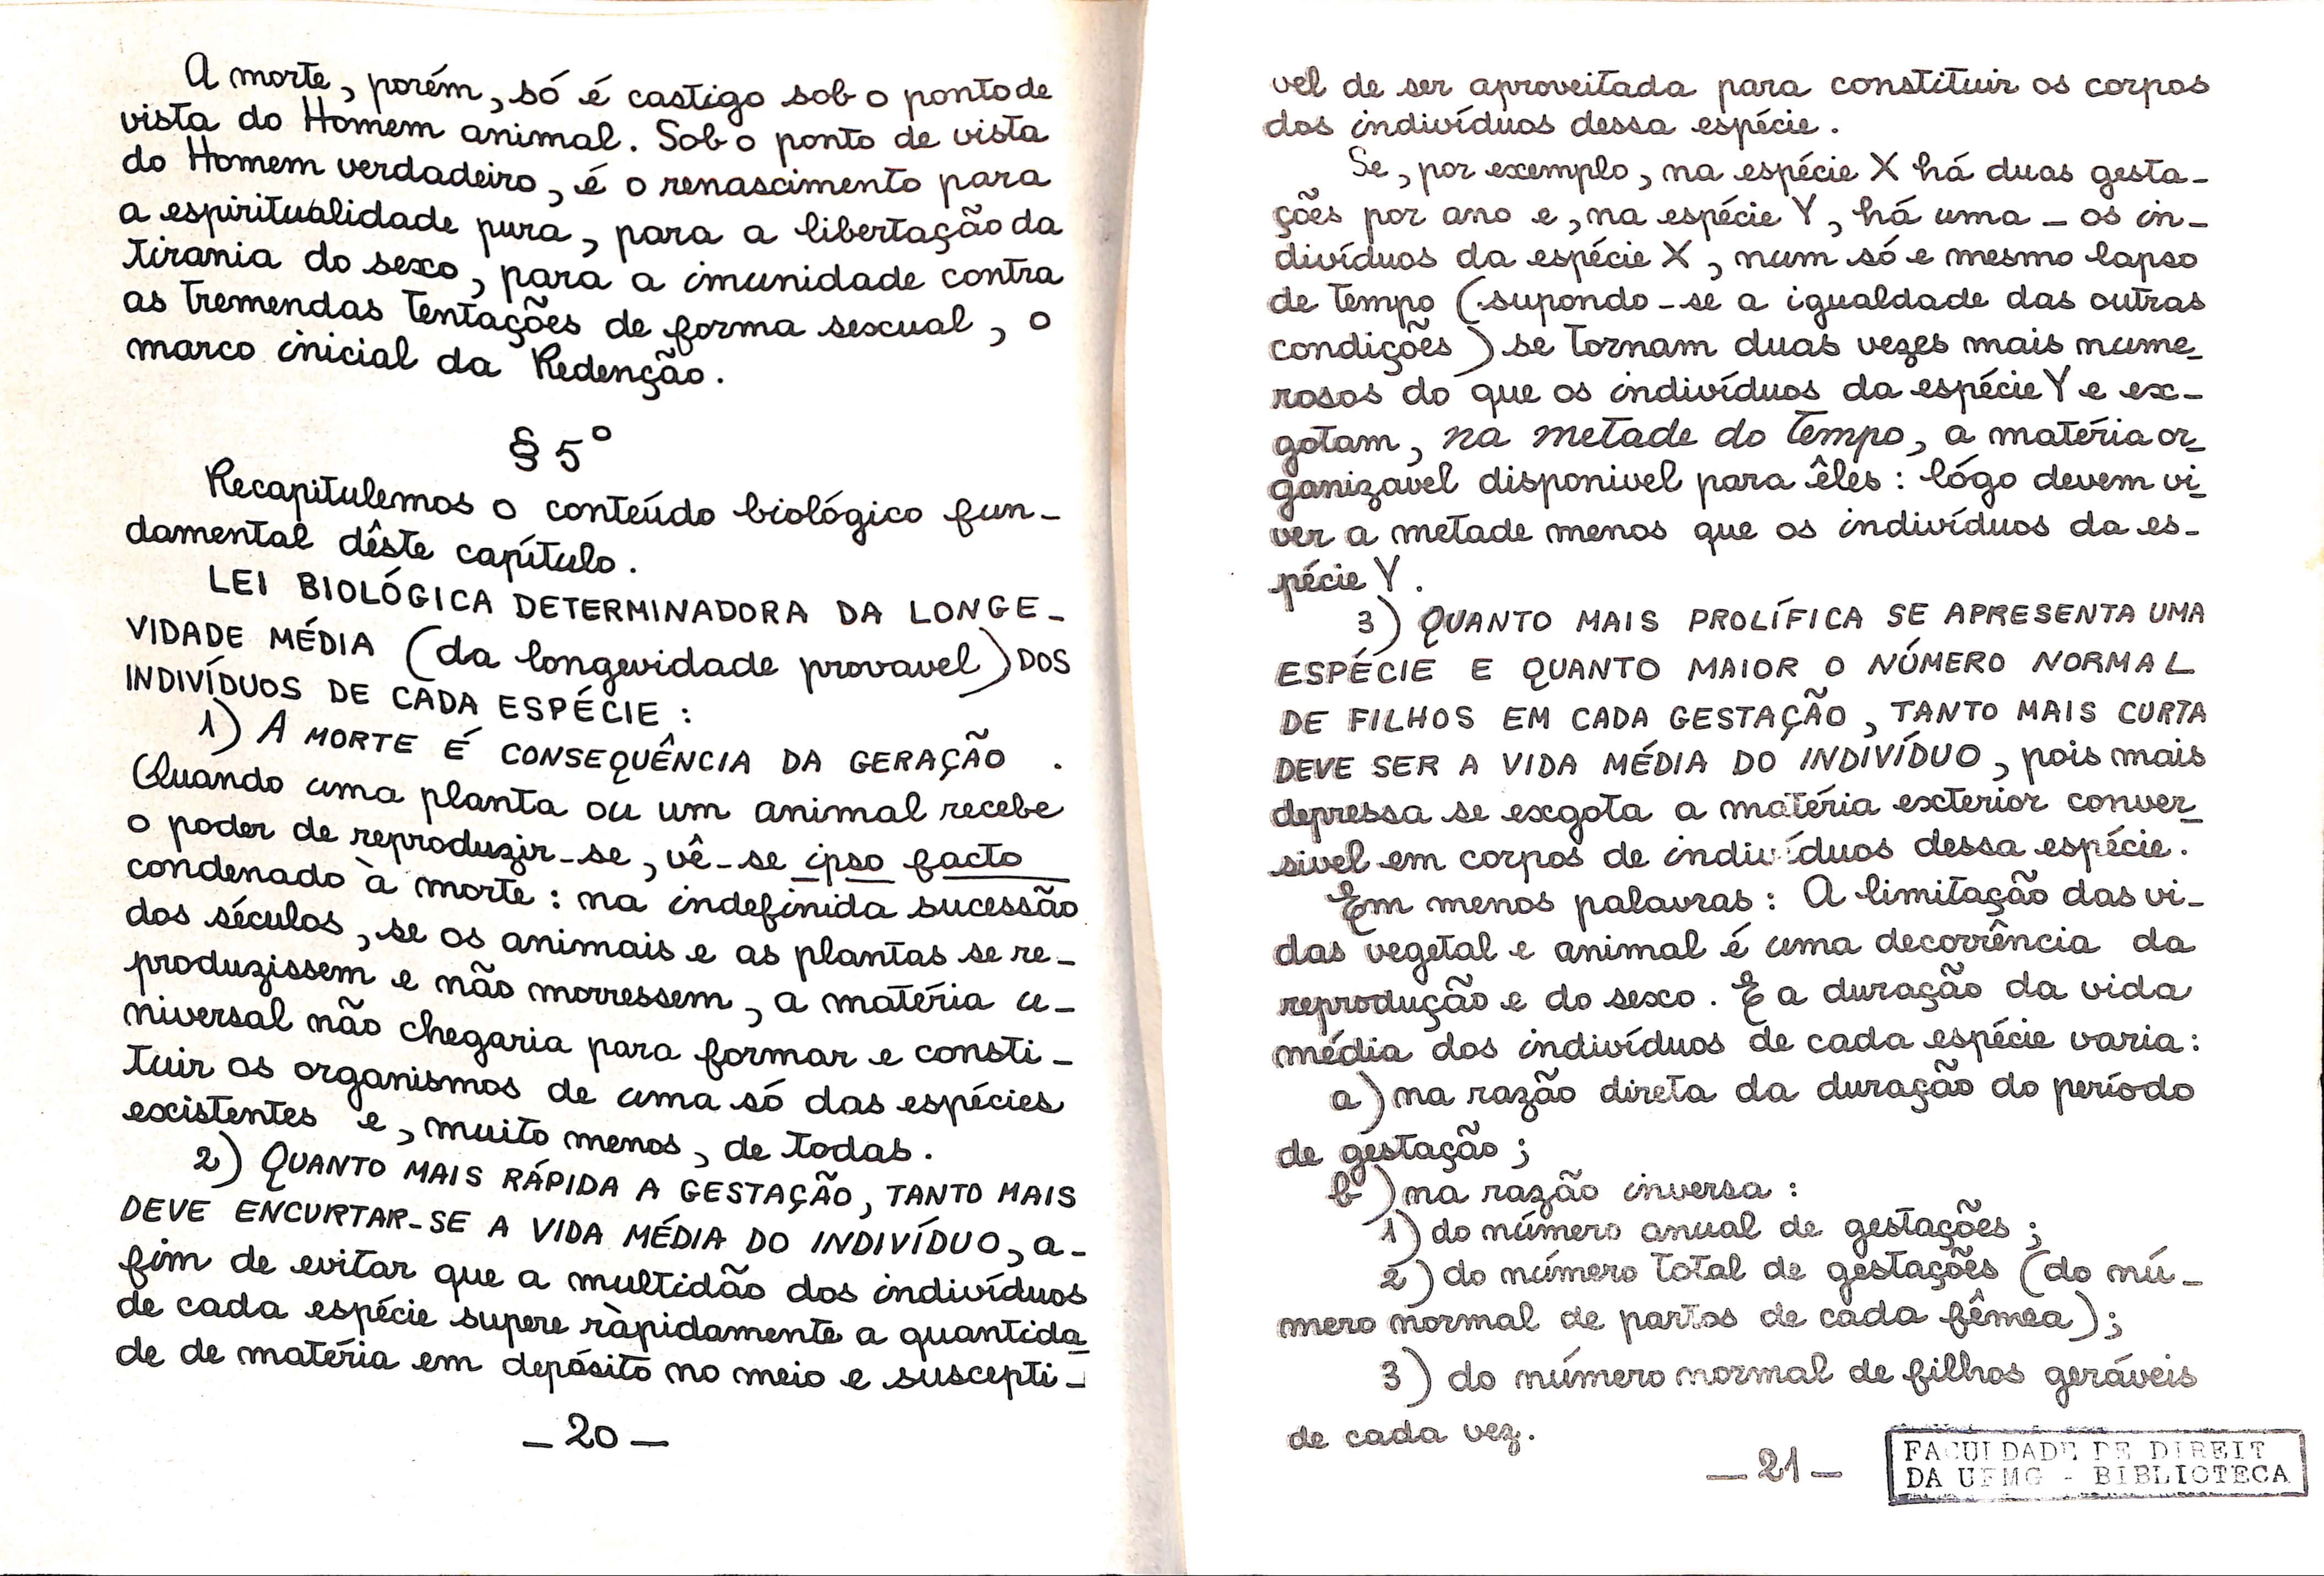 A morte, porém, só é castigo sob o ponto de
vista do Homem animal. Sob o ponto de vista
do Homem verdadeiro, é o renascimento para
a espiritualidade pura, para a libertação da
tirania do sexo, para a imunidade contra
as tremendas tentações de forma sexual, o
marco inicial da Redenção.
§ 5º
Recapitulemos o conteúdo biológico fun-
damental dêste capítulo.
LEI BIOLÓGICA DETERMINADORA DA LONGE-
VIDADE MÉDIA (da longevidade provavel) DOS
INDIVÍDUOS DE CADA ESPÉCIE :
1) A MORTE É CONSEQUÊNCIA DA GERAÇÃO .
Quando uma planta ou um animal recebe
o poder de reproduzir-se, vê-se ipso facto
condenado à morte : na indefinida sucessão
dos séculos, se os animais e as plantas se re-
produzissem e não morressem, a matéria u-
niversal não chegaria para formar e consti-
tuir os organismos de uma só das espécies
existentes e, muito menos, de todas.
2) QUANTO MAIS RÁPIDA A GESTAÇÃO, TANTO MAIS
DEVE ENCURTAR-SE A VIDA MÉDIA DO INDIVÍDUO, a-
fim de evitar que a multidão dos indivíduos
de cada espécie supere ràpidamente a quantida
de de matéria em depósito no meio e suscepti-
– 20 –
vel de ser aproveitada para constituir os corpos
dos indivíduos dessa espécie.
Se, por exemplo, na espécie X há duas gesta-
ções por ano e, na espécie Y, há uma – os in-
divíduos da espécie X, num só e mesmo lapso
de tempo (supondo-se a igualdade das outras
condições) se tornam duas vezes mais nume-
rosos do que os indivíduos da espécie Y e ex-
gotam, na metade do tempo, a matéria or-
ganizavel disponivel para êles : lógo devem vi-
ver a metade menos que os indivíduos da es-
pécie Y.
3) QUANTO MAIS PROLÍFICA SE APRESENTA UMA
ESPÉCIE E QUANTO MAIOR O NÚMERO NORMAL
DE FILHOS EM CADA GESTAÇÃO, TANTO MAIS CURTA
DEVE SER A VIDA MÉDIA DO INDIVÍDUO, pois mais
depressa se exgota a matéria exterior conver-
sivel em corpos de indivíduos dessa espécie.
Em menos palavras : A limitação das vi-
das vegetal e animal é uma decorrência da
reprodução e do sexo. E a duração da vida
média dos indivíduos de cada espécie varia :
a) na razão direta da duração do período
de gestação ;
b) na razão inversa :
1) do número anual de gestações ;
2) do número total de gestações (do nú-
mero normal de partos de cada fêmea) ;
3) do número normal de filhos geráveis
de cada vez.
– 21 –
FACULDADE DE DIREIT
DA UFMG - BIBLIOTECA